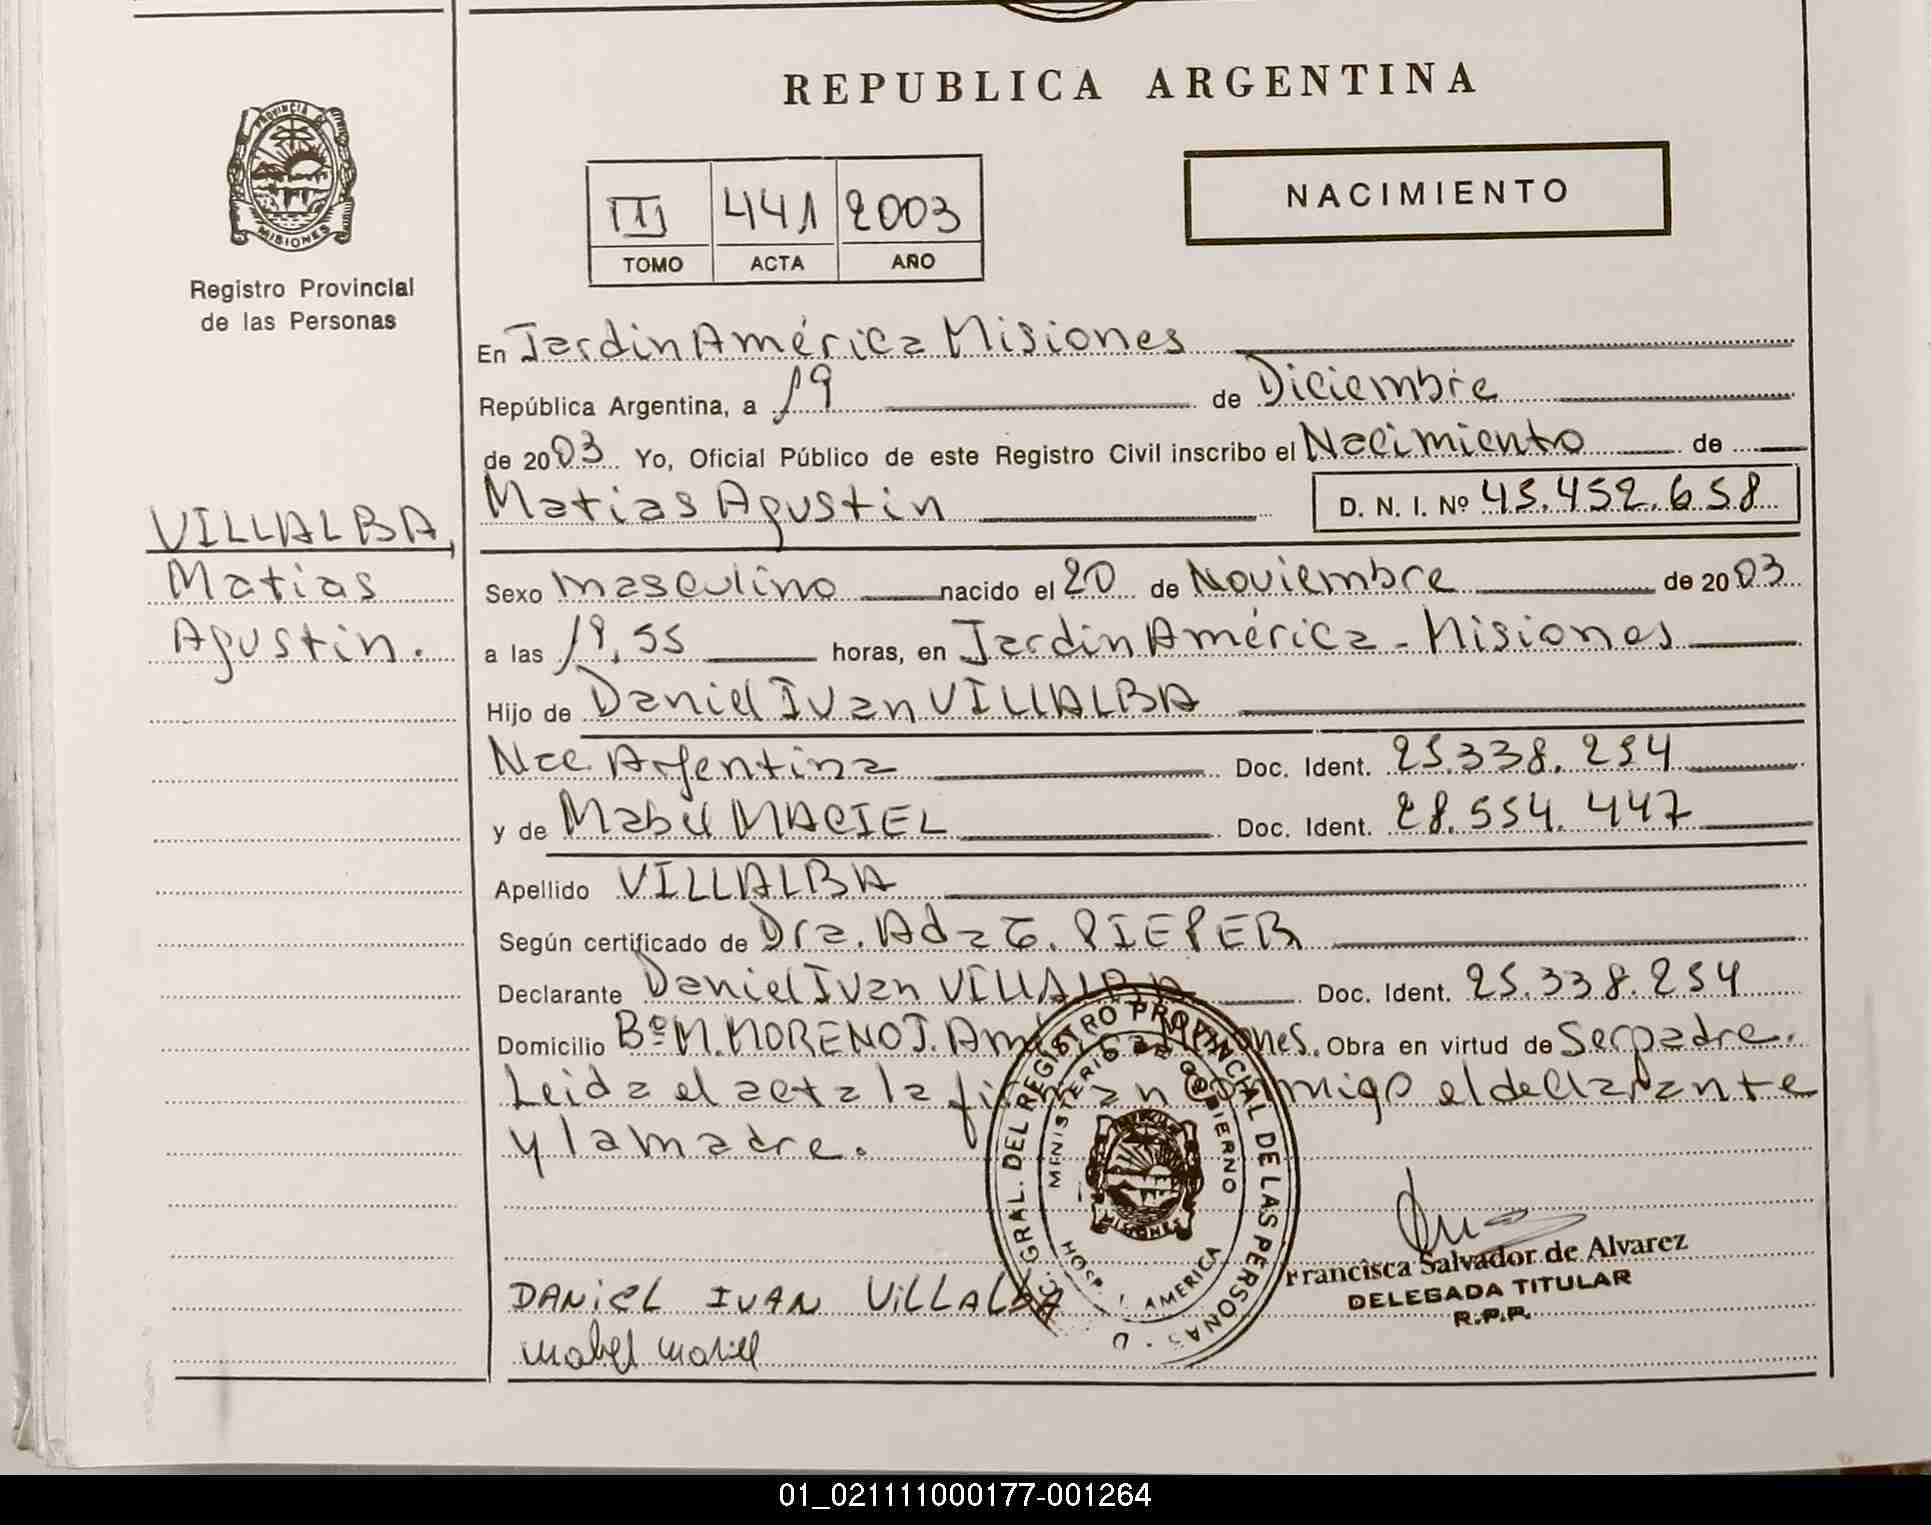 REPUBLICA ARGENTINA
PROVINCIA DE MISIONES
Registro Provincial
de las Personas
III 441 2003
TOMO ACTA AÑO
NACIMIENTO
En Jardin América Misiones
República Argentina, a 19 de Diciembre
de 2003 Yo, Oficial Público de este Registro Civil inscribo el Nacimiento de
Matias Agustin D. N. I. Nº 45.452.658
VILLALBA,
Matias
Agustin.
Sexo masculino nacido el 20 de Noviembre de 2003
a las 19,55 horas, en Jardin América - Misiones
Hijo de Daniel Ivan VILLALBA
Nac. Argentina Doc. Ident. 25.338.254
y de Mabel MACIEL Doc. Ident. 28.554.447
Apellido VILLALBA
Según certificado de Dra. Ada PIEPER
Declarante Daniel Ivan VILLALBA Doc. Ident. 25.338.254
Domicilio Bº M. MORENO J. América Misiones. Obra en virtud de Ser padre.
Leida el acta la firman conmigo el declarante
y la madre.
GRAL. DEL REGISTRO PROVINCIAL DE LAS PERSONAS
MINISTERIO DE GOBIERNO
MISIONES
HOSP. AMERICA
Francisca Salvador de Alvarez
DELEGADA TITULAR
R.P.P.
DANIEL IVAN VILLALBA
Mabel Maciel
01_021111000177-001264